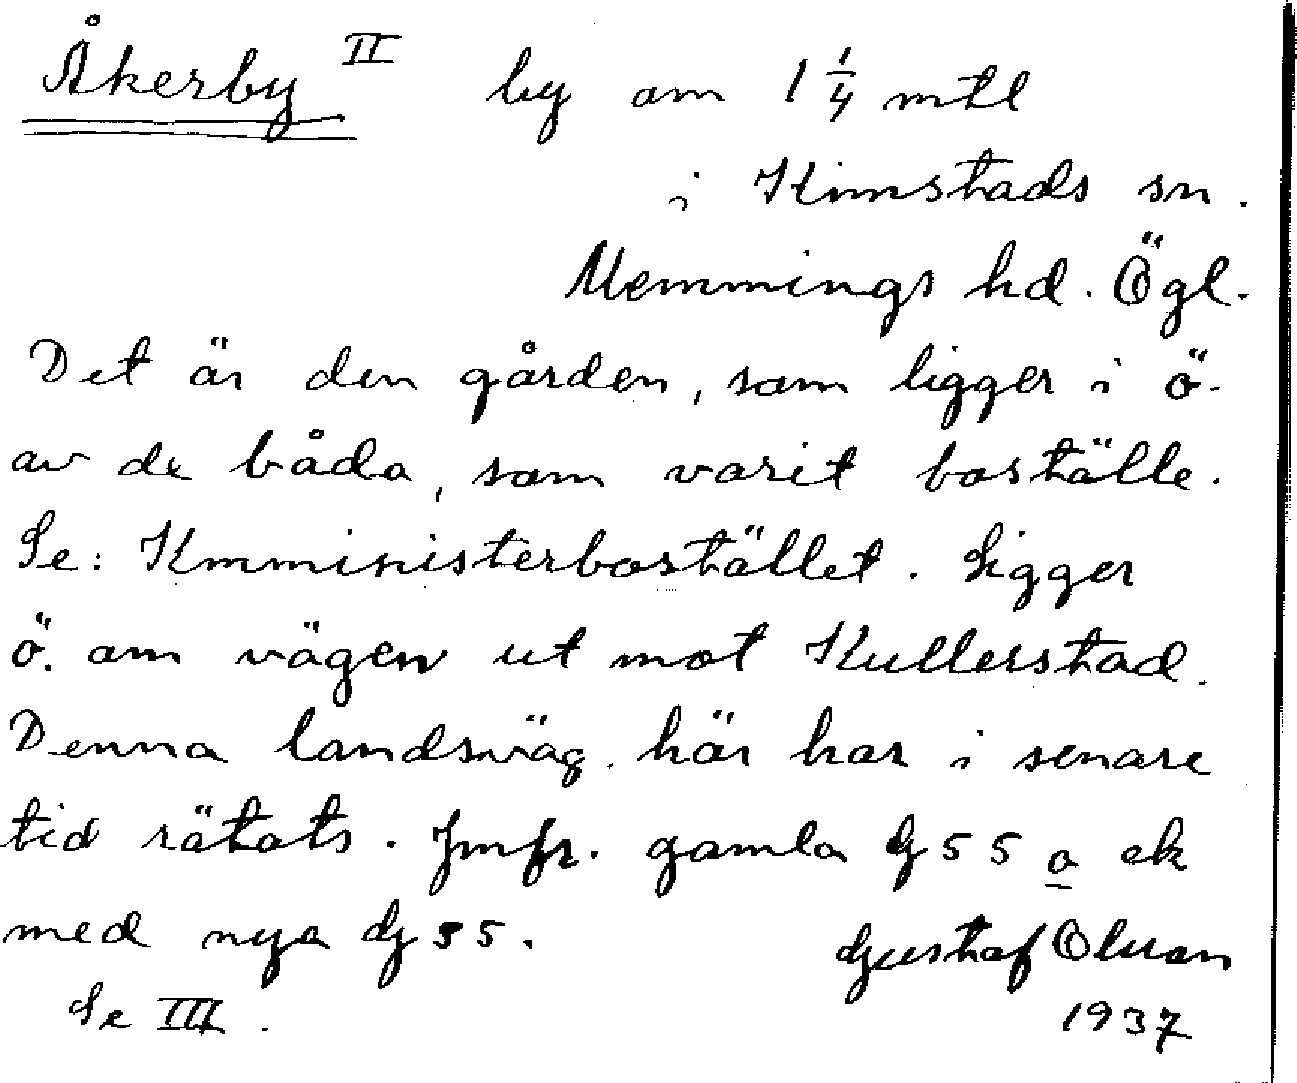 Åkerby II by om 1 1/4 mtl
i Kimstads sn.
Memmings hd. Ögl.
Det är den gården, som ligger i ö.
av de båda, som varit boställe.
Se: Kmministerbostället. Ligger
ö. om vägen ut mot Kullerstad.
Denna landsväg här har i senare
tid rätats. Jmfr. gamla G 55 a ek
med nya G 55.
Gustaf Olson
Se III.
1937